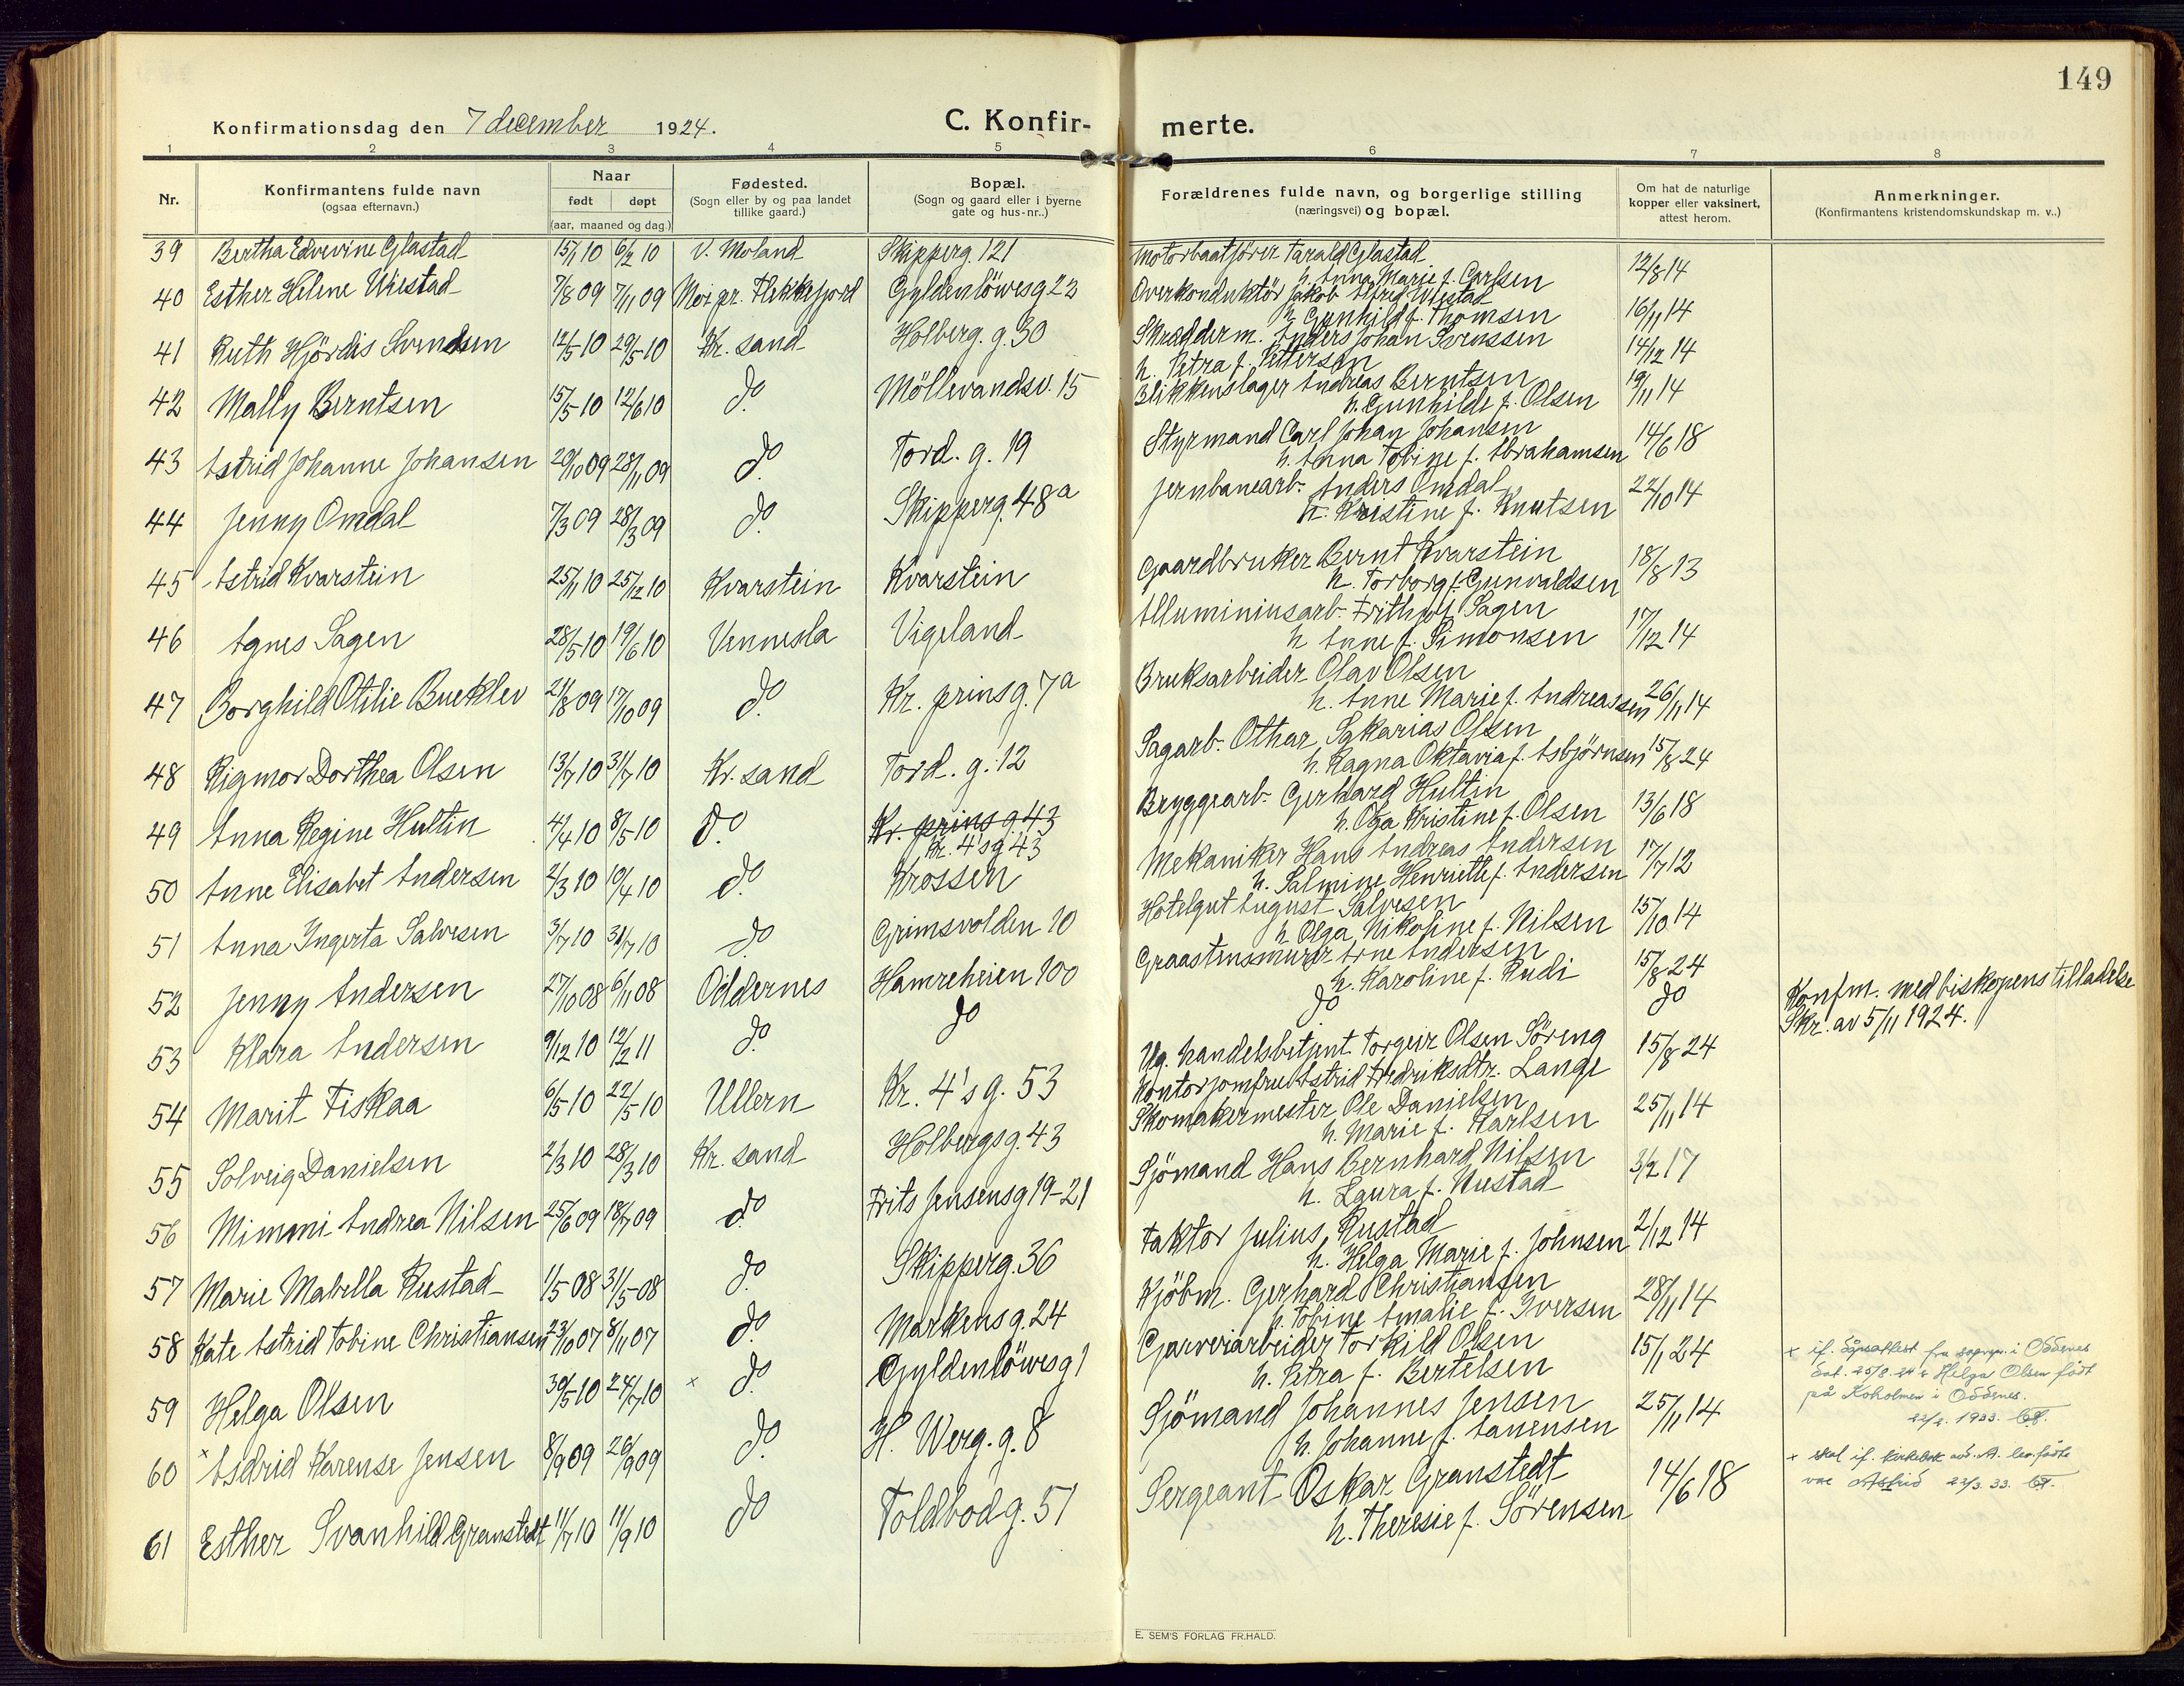 149
Konfirmationsdag den 7 december 1924.
C. Konfirmerte.
1 2 3 4 5 6 7 8
Nr.
Konfirmantens fulde navn
(ogsaa efternavn.)
Naar
født døpt
(aar, maaned og dag.)
Fødested.
(Sogn eller by og paa landet
tillike gaard.)
Bopæl.
(Sogn og gaard eller i byerne
gate og hus-nr..)
Forældrenes fulde navn, og borgerlige stilling
(næringsvei) og bopæl.
Om hat de naturlige
kopper eller vaksinert,
attest herom.
Anmerkninger.
(Konfirmantens kristendomskundskap m. v..)
39 Bertha Edvevine Glastad 15/1 10 6/2 10 V. Moland Skipperg. 121 Motorbaatfører Tarald Glastad
h. Anna Marie f. Carlsen 12/8 14
40 Esther Helene Wiestad 7/8 09 7/11 09 Moi pr. Flekkefjord Gyldenlöwesg 23 Overkonduktör Jakob Alfred Wiestad
h. Gunhild f. Thomsen 16/11 14
41 Ruth Hjördis Svendsen 12/5 10 29/5 10 Kr. sand Holberg. g. 30 Skrædderm. Anders Johan Svenssen
h. Petra f. Pettersen 14/12 14
42 Mally Berntsen 15/5 10 12/6 10 do Möllevandsv. 15 Blikkenslager Andreas Berntsen
h. Gunhilde f. Olsen 19/11 14
43 Astrid Johanne Johansen 20/10 09 28/11 09 do Tord. g. 19 Styrmand Carl Johan Johansen
h. Anna Tobine f. Abrahamsen 14/6 18
44 Jenny Omdal 7/3 09 28/3 09 do Skipperg. 48a Jernbanearb. Anders Omdal
h. Kristine f. Knutsen 22/10 14
45 Astrid Kvarstein 25/11 10 25/12 10 Kvarstein Kvarstein Gaardbruker Bernt Kvarstein
h. Torborg f. Gunvaldsen 18/8 13
46 Agnes Sagen 28/5 10 19/6 10 Vennesla Vigeland Alluminiusarb. Frithjof Sagen
h. Anne f. Simonsen 17/12 14
47 Borghild Otilie Bueklev 21/8 09 17/10 09 do Kr. prinsg. 7a Bruksarbeider Olav Olsen
h. Anne Marie f. Andreassen 26/11 14
48 Rigmor Dorthea Olsen 13/7 10 31/7 10 Kr. sand Tord. g. 12 Sagarb. Othar Sakarias Olsen
h. Ragna Oktavia f. Asbjørnsen 15/8 24
49 Anna Regine Hultin 4/4 10 8/5 10 do Kr. prins g 43
Kr. 4's g 43 Bryggearb. Gerhard Hultin
h. Olga Kristine f. Olsen 13/6 18
50 Anne Elisabet Andersen 2/3 10 10/4 10 do Krossen Mekaniker Hans Andreas Andersen
h. Salmine Henriette f. Andersen 17/7 12
51 Anna Ingerta Salvesen 3/7 10 31/7 10 do Grimsvolden 10 Hotelgut August Salvesen
h. Olga Nikoline f. Nilsen 15/10 14
52 Jenny Andersen 27/10 08 6/11 08 Oddernes Hamreheien 100 Graastensmurer Arne Andersen
h. Karoline f. Rudi 15/8 24
53 Klara Andersen 9/12 10 12/2 11 do do do do Konfm. med biskopens tilladelse
Skr. av 5/11 1924.
54 Marit Fiskaa 6/5 10 22/5 10 Ullern Kr. 4's g. 53 Ug. handelsbetjent Torgeir Olsen Söreng
Kontorjomfru Astrid Fredriksdtr. Lange 15/8 24
55 Solveig Danielsen 2/3 10 28/3 10 Kr. sand Holbergsg. 43 Skomakermester Ole Danielsen
h. Marie f. Karlsen 25/11 14
56 Mimmi Andrea Nilsen 25/6 09 18/7 09 do Frits Jensensg 19-21 Sjömand Hans Bernhard Nilsen
h. Laura f. Nustad 3/2 17
57 Marie Mabella Rustad 1/5 08 31/5 08 do Skipperg. 36 Faktor Julius Rustad
h. Helga Marie f. Johnsen 2/12 14
58 Kate Astrid Tobine Christiansen 23/10 07 8/11 07 do Markens g. 24 Kjöbm. Gerhard Christiansen
h. Tobine Amalie f. Iversen 28/11 14
59 Helga Olsen 30/5 10 24/7 10 x do Gyldenlöwesg 1 Garveriarbeider Torkild Olsen
h. Petra f. Bertelsen 15/1 24 x if. dåpsattest fra sognepr. i Oddernes
dat. 25/8. 24 er Helga Olsen født
på Koholmen i Oddernes.
22/2. 1933.
60 x Astrid Karense Jensen 8/9 09 26/9 09 do H. Werg. g. 8 Sjömand Johannes Jensen
h. Johanne f. Aanensen 25/11 14 x skal if. kirkebok avd. A. lev. fødte
vere Astrid 23/3. 33.
61 Esther Svanhild Granstedt 11/7 10 11/9 10 do Toldbodg. 51 Sergeant Oskar Granstedt
h. Theresie f. Sörensen 14/6 18
E. SEM'S FORLAG FR.HALD.